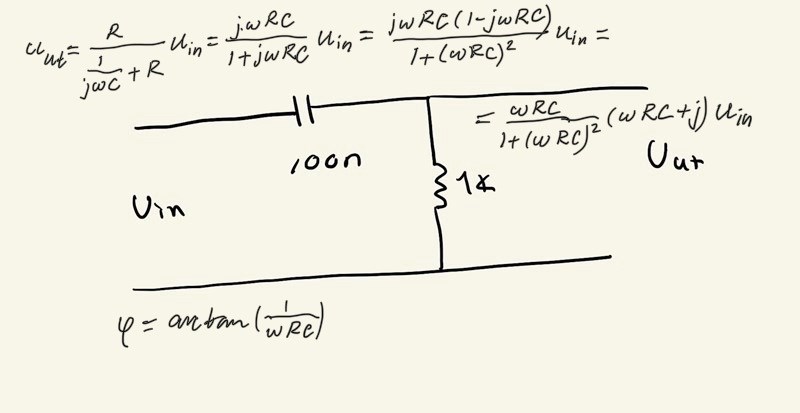 u_ut = R / (1/jωC + R) u_in = jωRC / (1+jωRC) u_in = jωRC(1-jωRC) / (1+(ωRC)²) u_in =
= ωRC / (1+(ωRC)²) (ωRC+j) u_in
100n
1k
Uut
Uin
φ = arctan(1/ωRC)